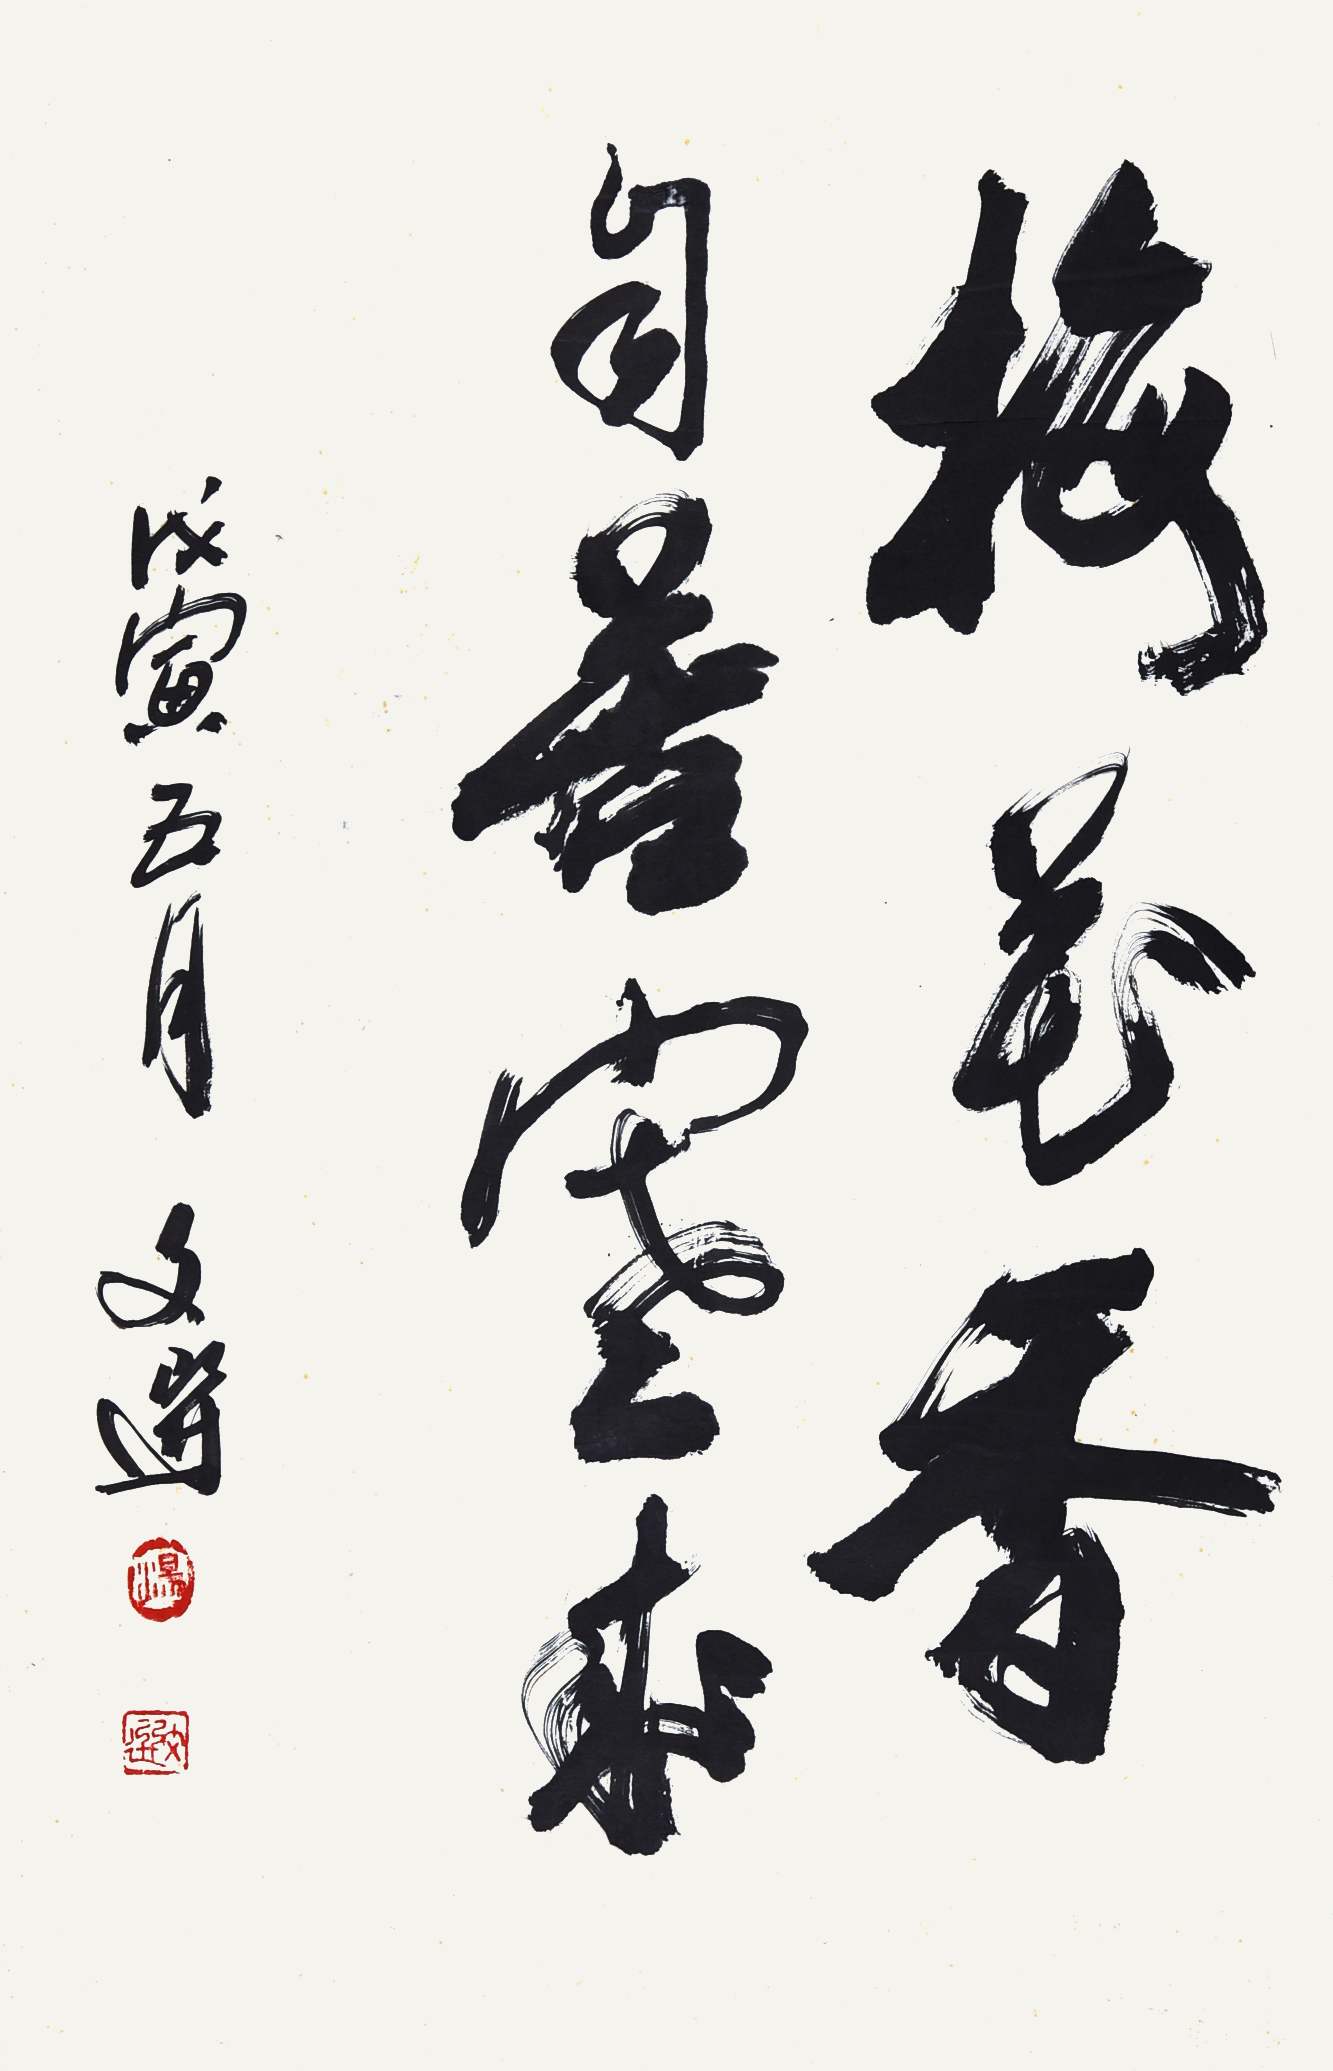 梅花香
自苦寒来
戊寅五月 文選
文選